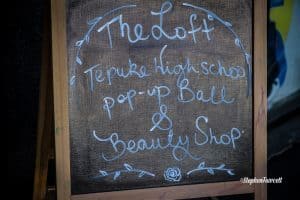 The Loft
Tepuke High school
pop-up Ball
&
Beauty Shop.
©Stephen Fawcett